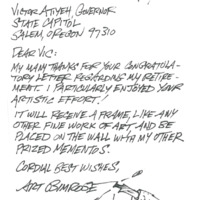 VICTOR ATIYEH GOVERNOR
STATE CAPITOL
SALEM, OREGON 97310
DEAR VIC:
MY MANY THANKS FOR YOUR CONGRATULA-
TORY LETTER REGARDING MY RETIRE-
MENT. I PARTICULARLY ENJOYED YOUR
ARTISTIC EFFORT!
IT WILL RECEIVE A FRAME, LIKE ANY
OTHER FINE WORK OF ART AND BE
PLACED ON THE WALL WITH MY OTHER
PRIZED MEMENTOS.
CORDIAL BEST WISHES,
ART BIMROSE